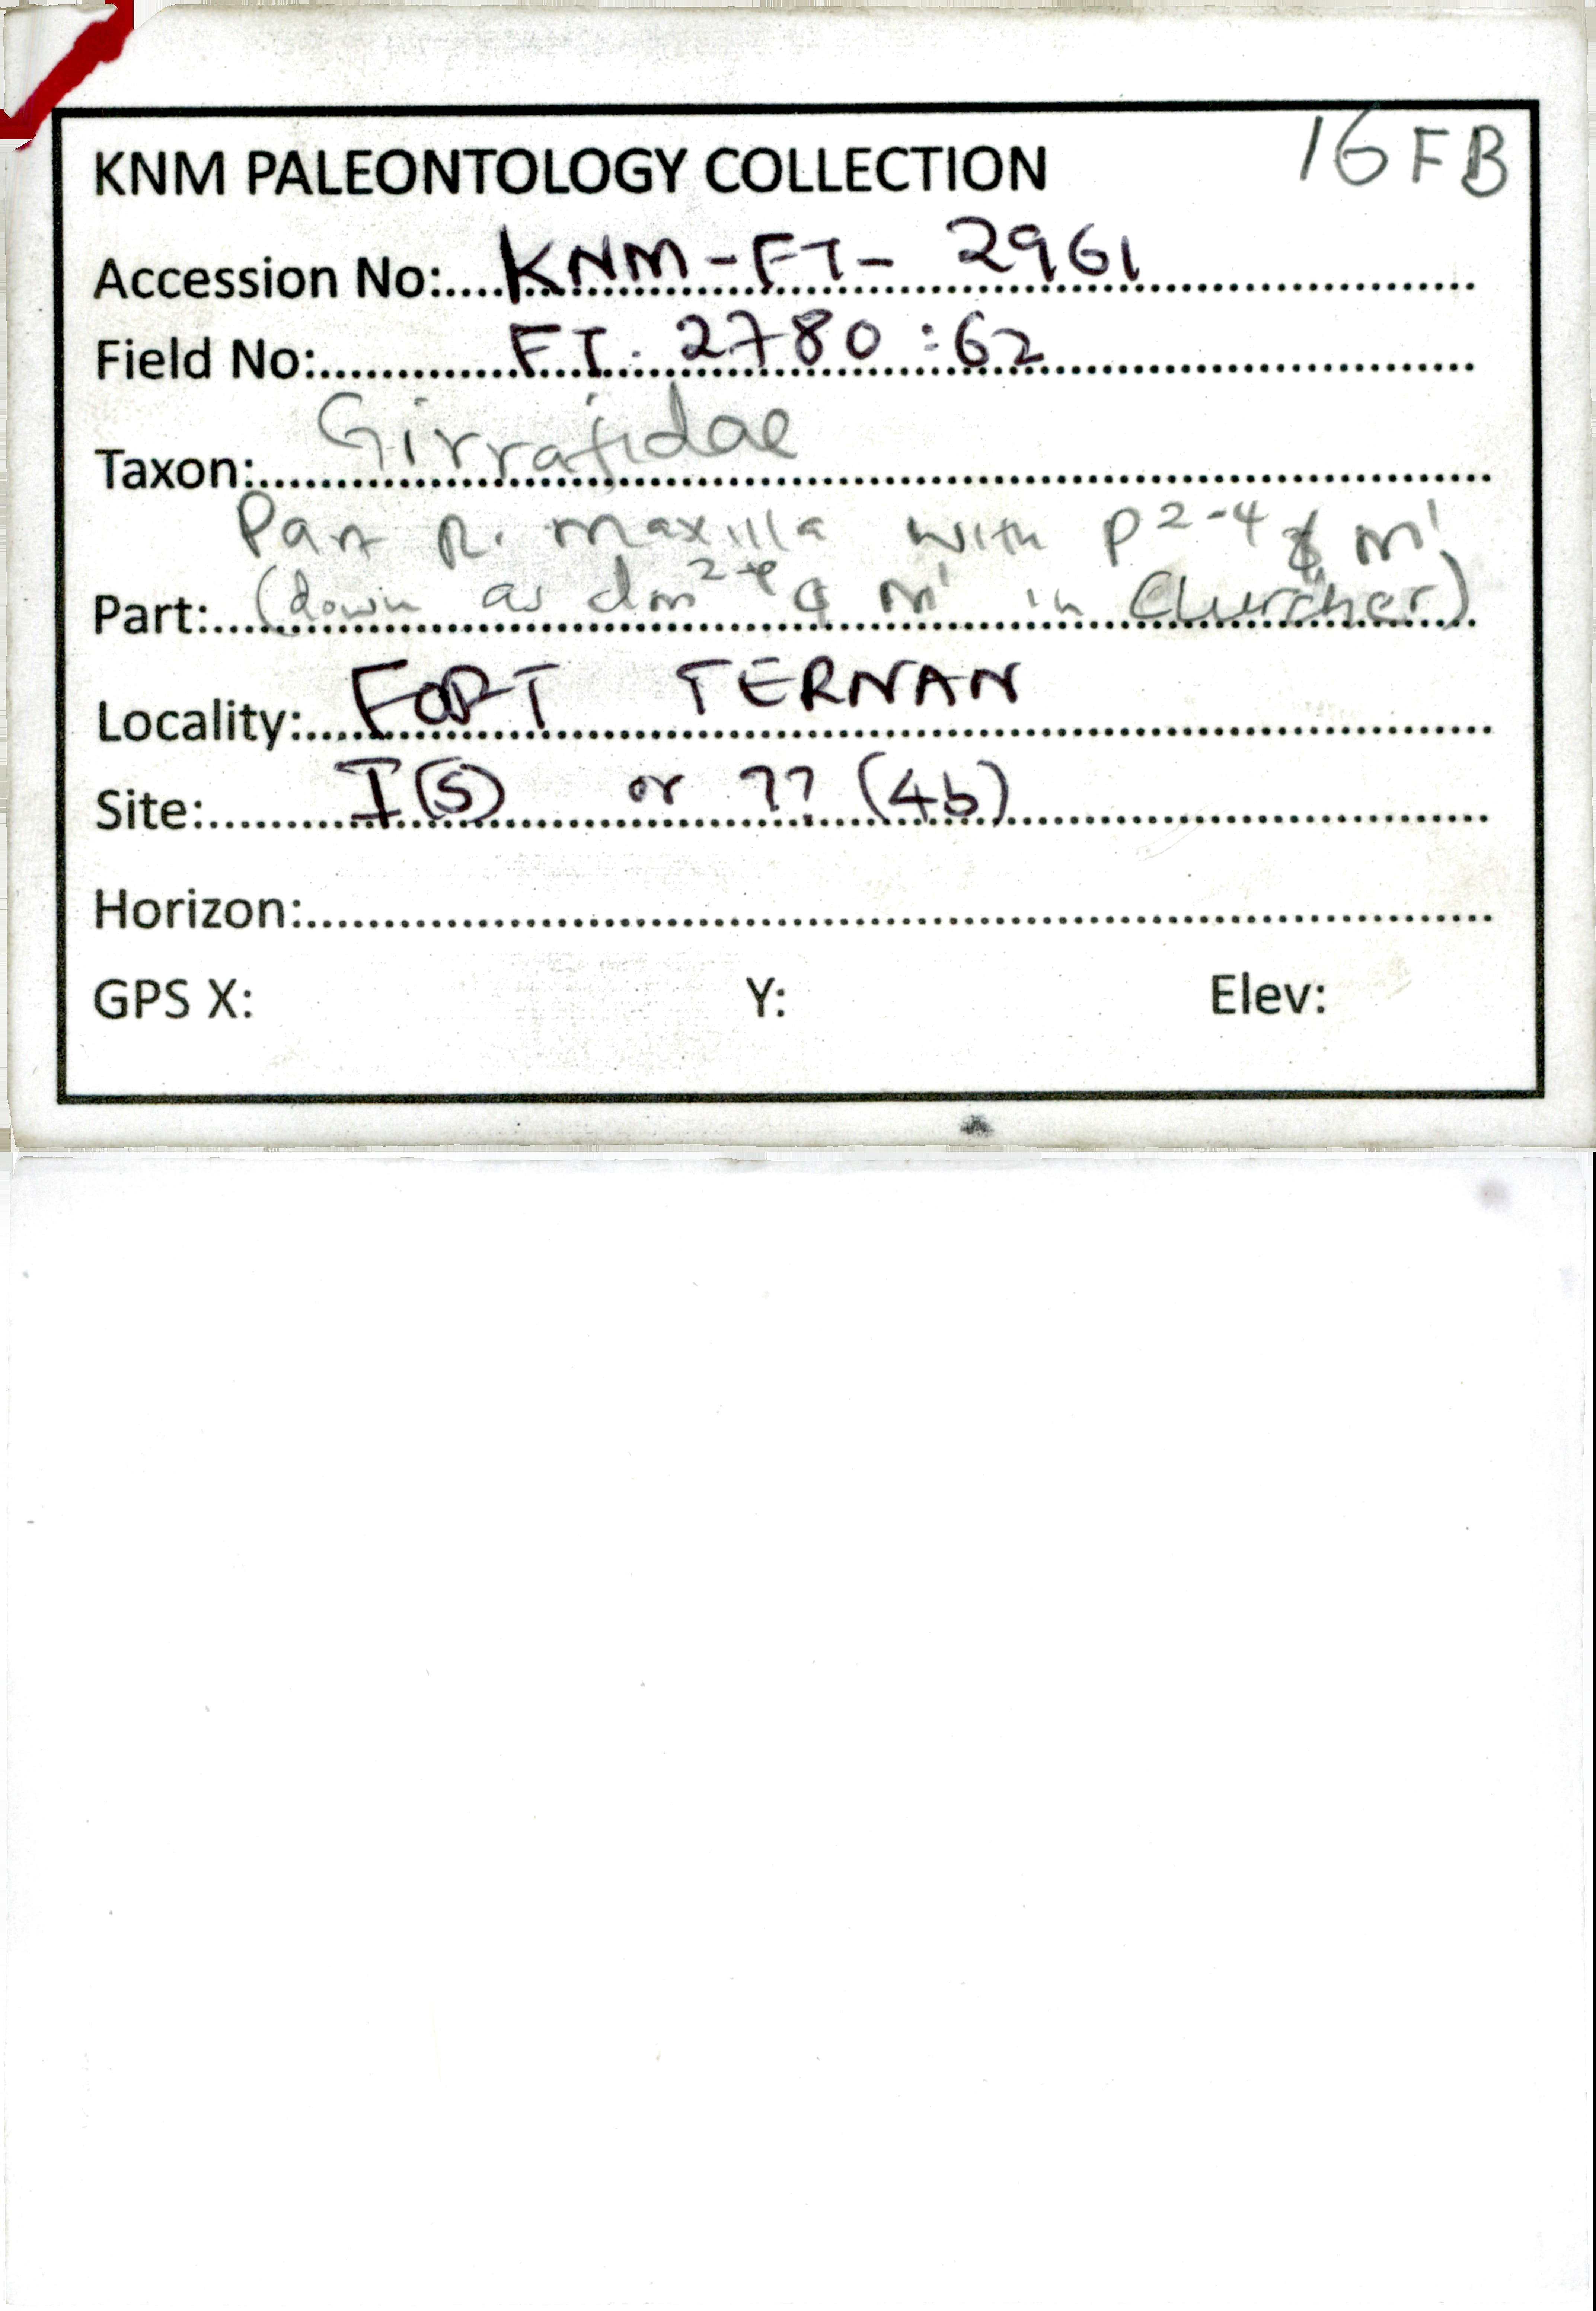 16FB
KNM PALEONTOLOGY COLLECTION
Accession No:....KNM-FT- 2961
Field No:....FT. 2780 :62
Taxon:....Girrafidae
Part R. maxilla with P2-4 & M1
Part:....(down as dm2-4 & M1 in Churcher)
Locality:....FORT TERNAN
Site:....I(5) or ?? (4b)
Horizon:....
GPS X: Y: Elev: